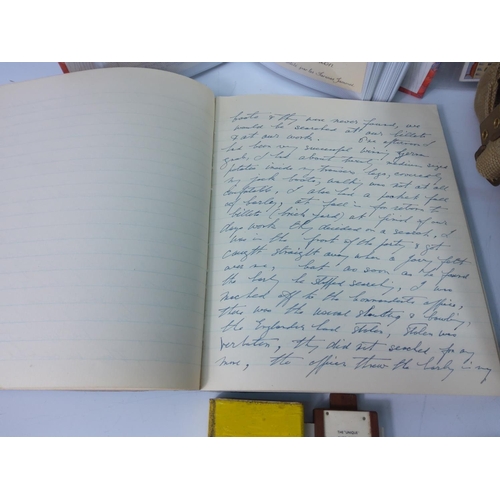 boots & they were never found, we
would be searched at our billets
& at our work. One afternoon I
had been very successful using Germ
I had about twenty medium sized
potatoes inside my trouser legs, covered by
my jack boots, walking was not at all
comfortable, I also had a pocket full
of barley, at fall in for return to
billets (brick yard) at finish of our
days work they decided on a search, I
was in the front of the party & got
caught straight away when a jerry felt
over me, but as soon as he found
the barley he stopped searching, I was
marched off to the Commandants office,
there was the usual shouting & bawling,
the Englander had stolen, stolen was
verboten, they did not search for any
more, the officer threw the barley in my
THE "UNIQUE"